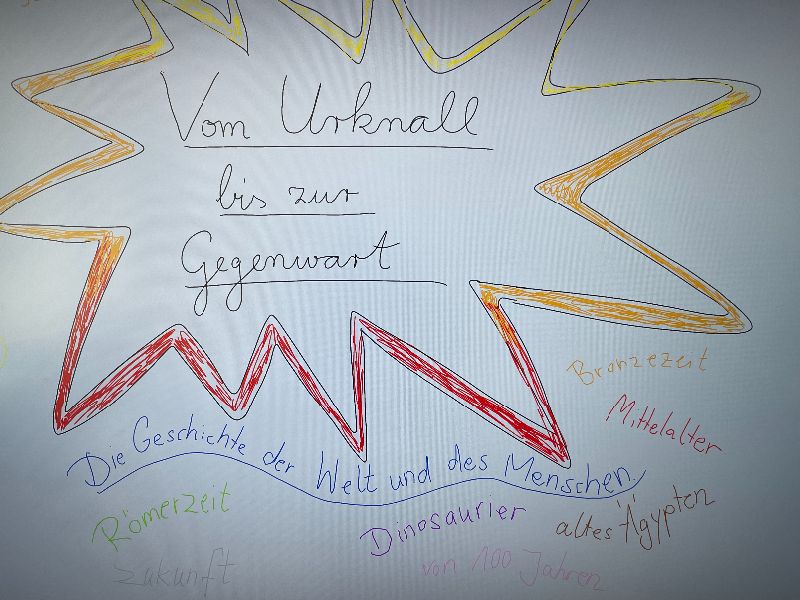 Vom Urknall
bis zur
Gegenwart
Bronzezeit
Mittelalter
Die Geschichte der Welt und des Menschen
Römerzeit
Dinosaurier
altes Ägypten
Zukunft
von 100 Jahren